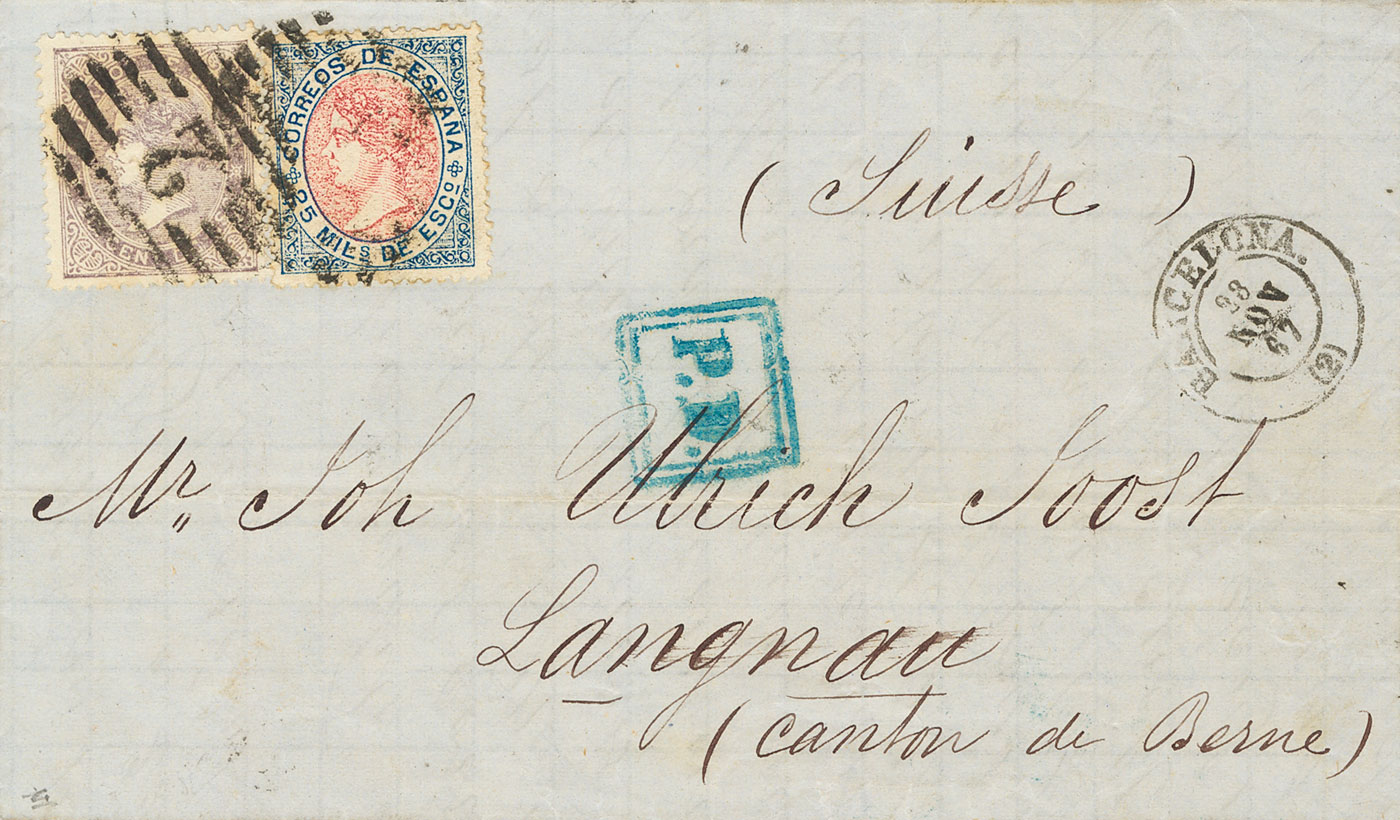 CORREOS DE ESPAÑA
25 MILs DE ESCo
2
(Suisse)
BARCELONA.
28
NOV
67
(2)
P.D.
Mr,, Joh Ulrich Joost
Langnau
(canton de Berne)